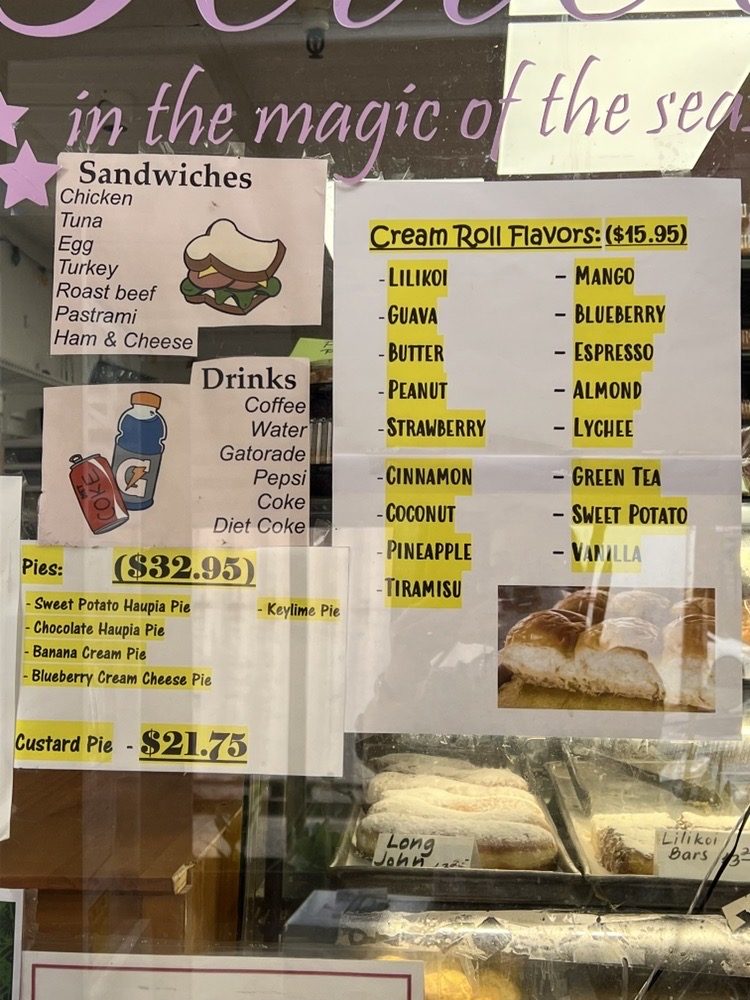 in the magic of the sea
Sandwiches
Chicken
Tuna
Egg
Turkey
Roast beef
Pastrami
Ham & Cheese
Drinks
Coffee
Water
Gatorade
Pepsi
Coke
Diet Coke
G
COKE
Pies: ($32.95)
- Sweet Potato Haupia Pie
- Keylime Pie
- Chocolate Haupia Pie
- Banana Cream Pie
- Blueberry Cream Cheese Pie
Custard Pie - $21.75
Cream Roll Flavors: ($15.95)
- LILIKOI
- GUAVA
- BUTTER
- PEANUT
- STRAWBERRY
- CINNAMON
- COCONUT
- PINEAPPLE
- TIRAMISU
- MANGO
- BLUEBERRY
- ESPRESSO
- ALMOND
- LYCHEE
- GREEN TEA
- SWEET POTATO
- VANILLA
Long
John
Lilikoi
Bars